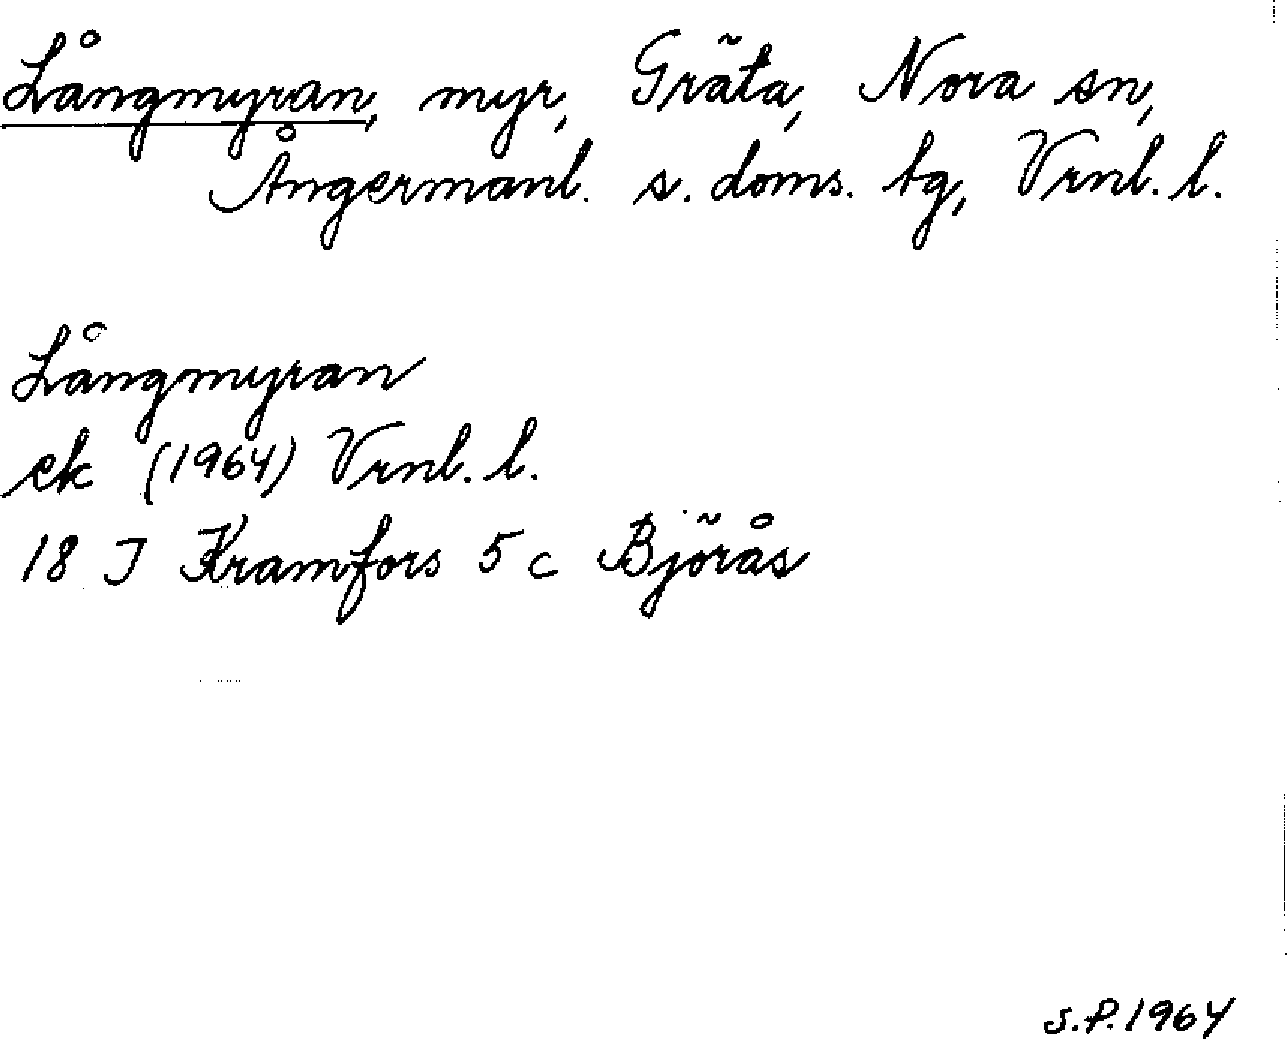 Långmyran, myr, Gräta, Nora sn,
Ångermanl. s. doms. tg, Vrnl. l.
Långmyran
ek (1964) Vrnl. l.
18 J Kramfors 5 c Björås
S.P. 1964